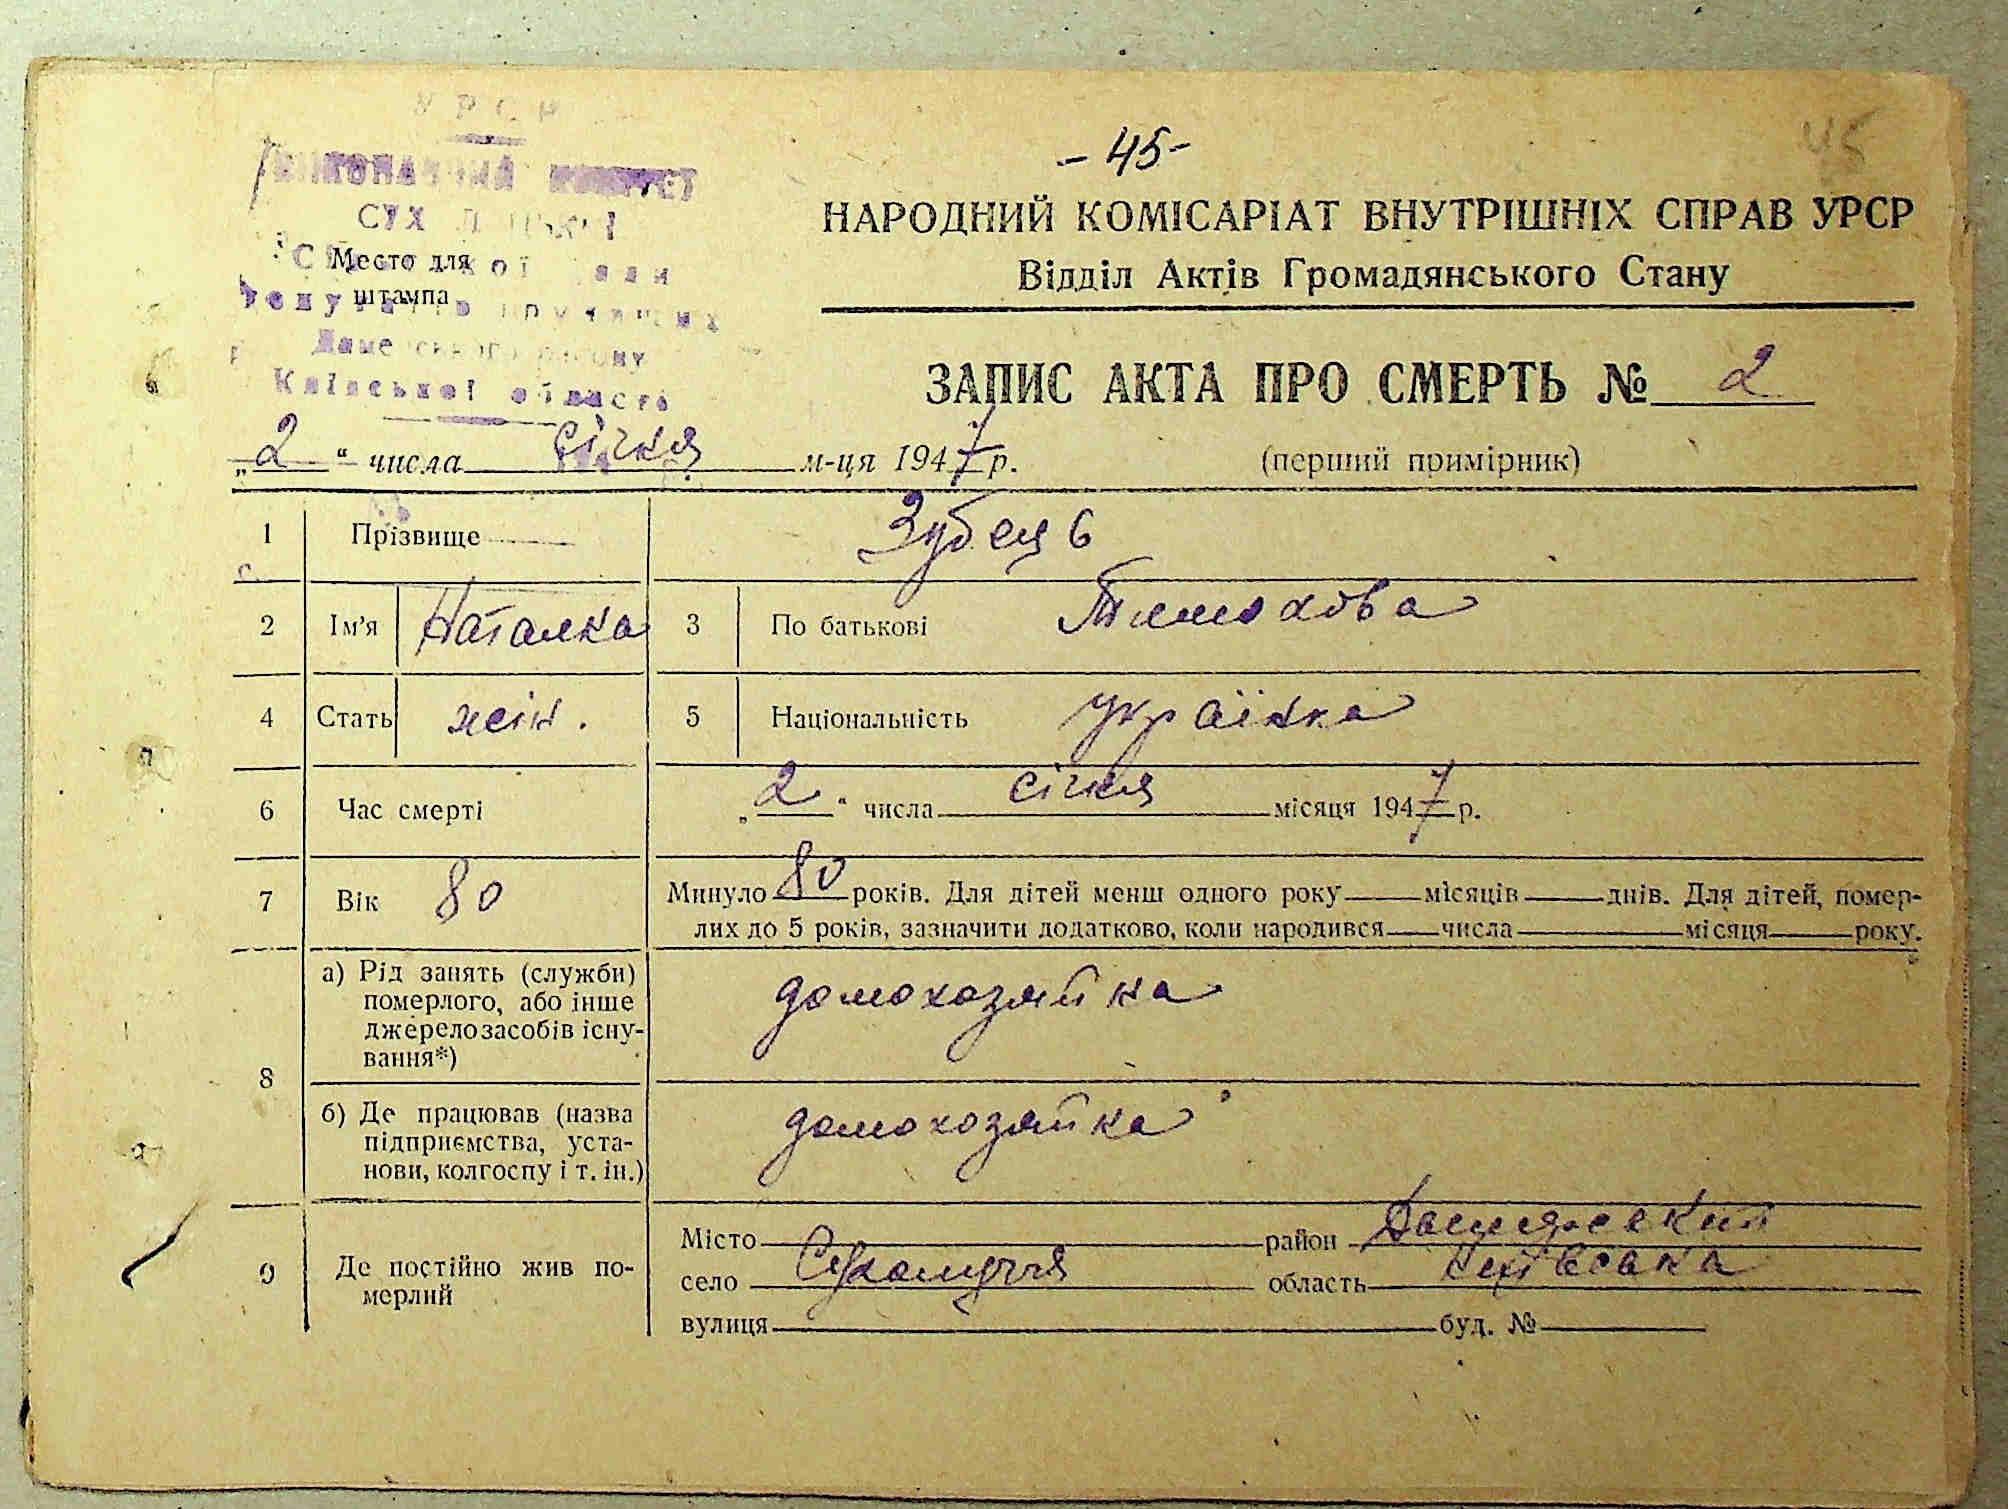 У Р С Р
-45-
45
ВИКОНАВЧИЙ КОМІТЕТ
НАРОДНИЙ КОМІСАРІАТ ВНУТРІШНІХ СПРАВ УРСР
Место для
штампа
Відділ Актів Громадянського Стану
Київської області
ЗАПИС АКТА ПРО СМЕРТЬ № 2
„2“ числа січня м-ця 1947 р. (перший примірник)
1 Прізвище Зубець
2 Ім'я Наталка 3 По батькові Тимохова
4 Стать жін. 5 Національність українка
6 Час смерті „2“ числа січня місяця 1947 р.
7 Вік 80 Минуло 80 років. Для дітей менш одного року місяців днів. Для дітей, помер-
лих до 5 років, зазначити додатково, коли народився числа місяця року.
8 а) Рід занять (служби)
померлого, або інше
джерело засобів існу-
вання*)
домохозяйка
б) Де працював (назва
підприємства, уста-
нови, колгоспу і т. ін.)
домохозяйка
9 Де постійно жив по-
мерлий
Місто район
село Сухолуччя область Київська
вулиця буд. №